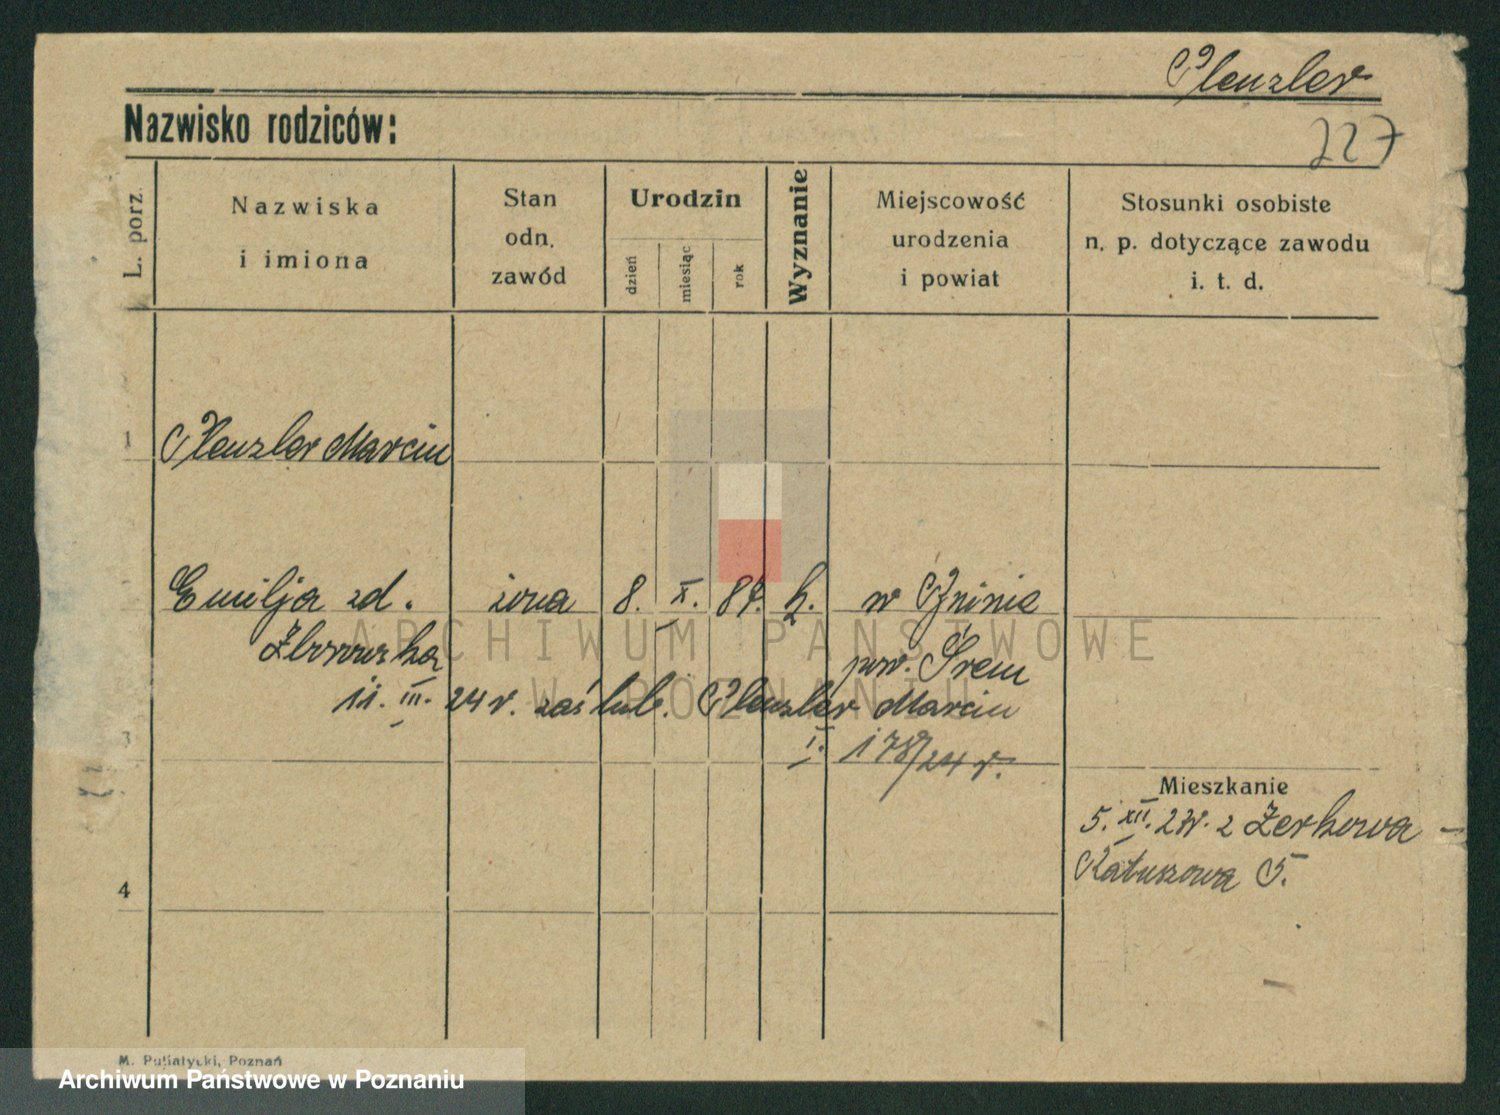 Plenzler
Nazwisko rodziców:
227
L. porz.
Nazwiska
i imiona
Stan
odn.
zawód
Urodzin
dzień
miesiąc
rok
Wyznanie
Miejscowość
urodzenia
i powiat
Stosunki osobiste
n. p. dotyczące zawodu
i. t. d.
1 Plenzler Marcin
Emilja zd. żona 8. X. 87. k. w
pow. Śrem
11. III. 24 r. zaślub. Plenzler Marcin
3 I. 178/24 r.
Mieszkanie
5. XII. 23r. z Żerkowa –
Ratuszowa 5.
4
M. Puliatycki, Poznań
ARCHIWUM PAŃSTWOWE
W POZNANIU
Archiwum Państwowe w Poznaniu